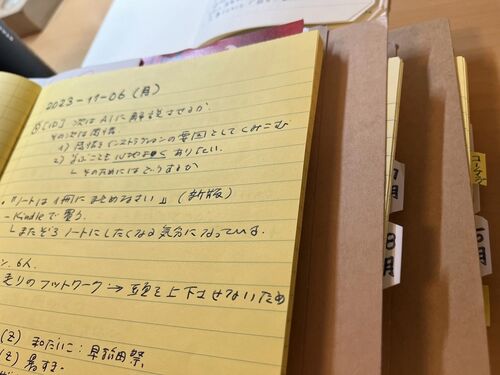 2023-11-06 (月)
[ID] 次は AIに解説させるか
その次は関係
1) 感情をインストラクションの要因としてくみこむ
2) まなぶことも心地よくありたい.
└ そのためにはどうするか
・『ノートは1冊にまとめなさい』(新版)
- Kindleで買う.
└またぞろノートにしたくなる気分になっている.
ン. 6人.
走りのフットワーク → 頭を上下させないため
(Z) 和だいこ: 早稲田祭.
(Z)
7月
8月
コーチング
6月